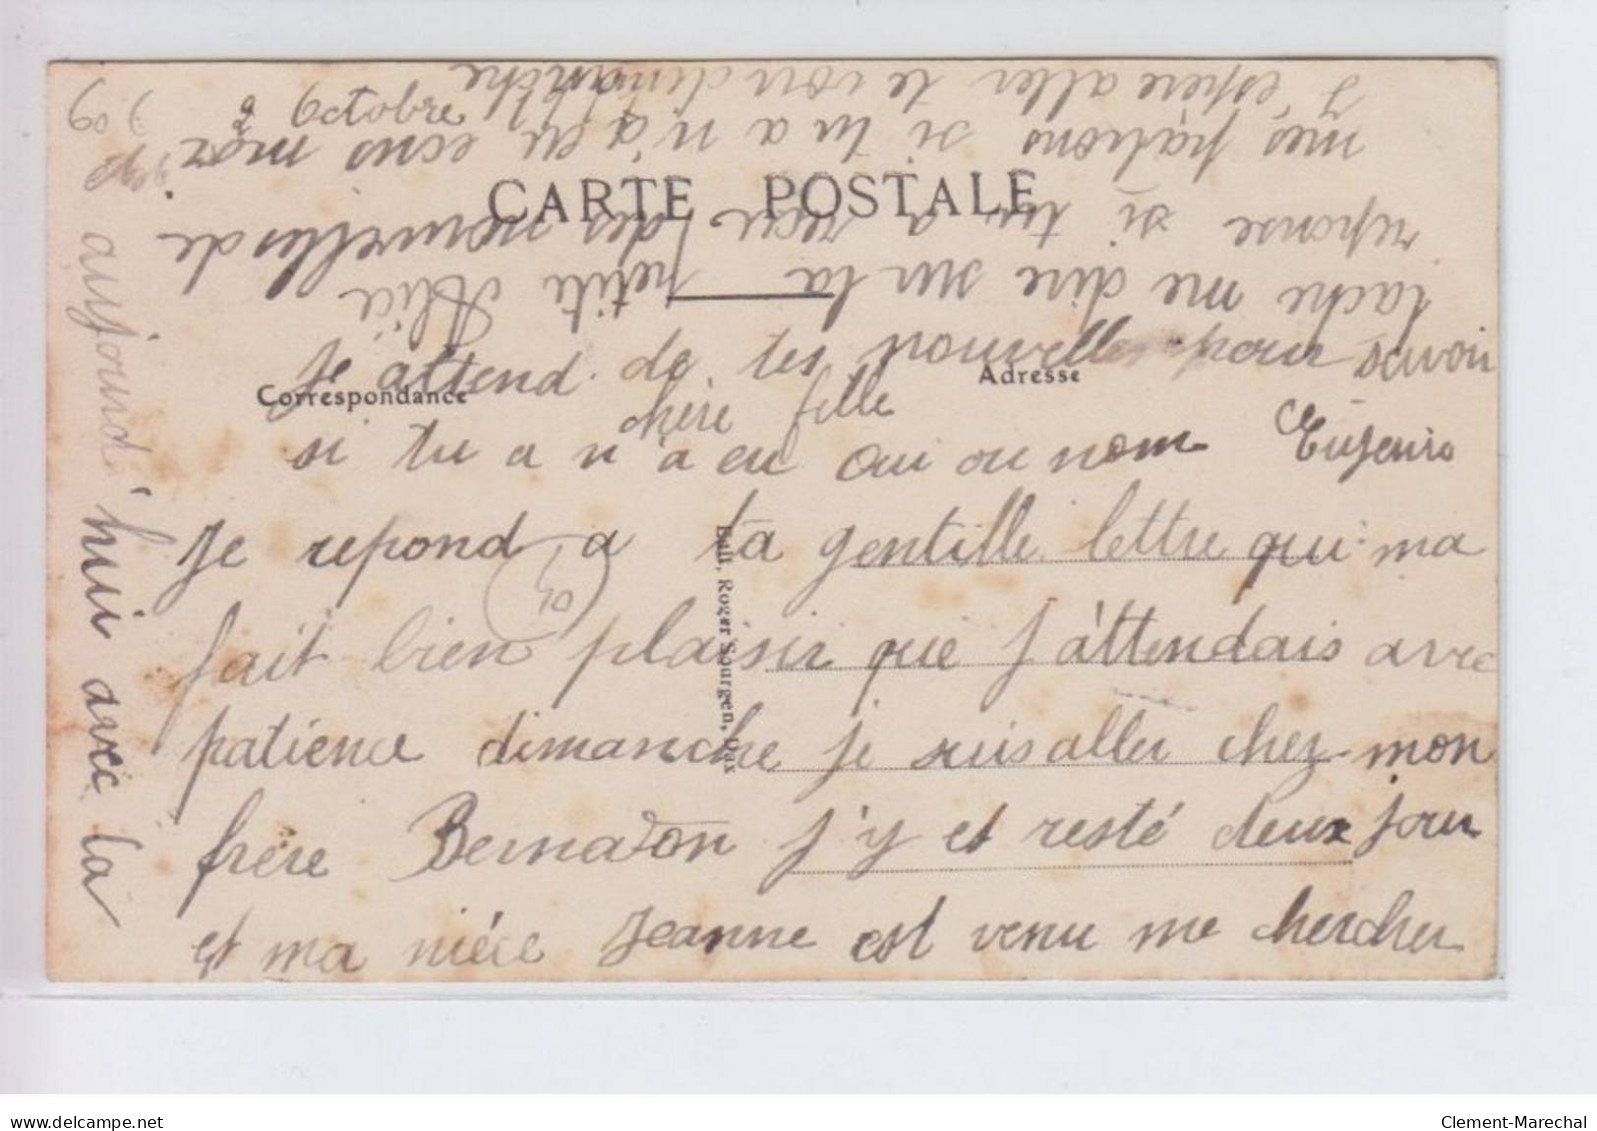 8 Octobre
CARTE POSTALE
Correspondance
Adresse
chère fille
Je repond a ta gentille lettre qui ma
fait bien plaisir que j'attendais avec
patience dimanche je suis aller chez mon
frère Bernadon j'y et resté deux jour
et ma nièce Jeanne est venu me chercher
aujourd'hui avec la
J'espère aller te voir dimanche
mes patrons si tu a n'a eu ecris moi
reponse si tu a reçu des nouvelles de
tache me dire sur la petite Alice
Je attend de tes nouvelles pour savoir
si tu a n'a eu oui ou nom Eugenie
Edit. Roger Sourgen, Dax
40
Clement-Marechal
delcampe.net